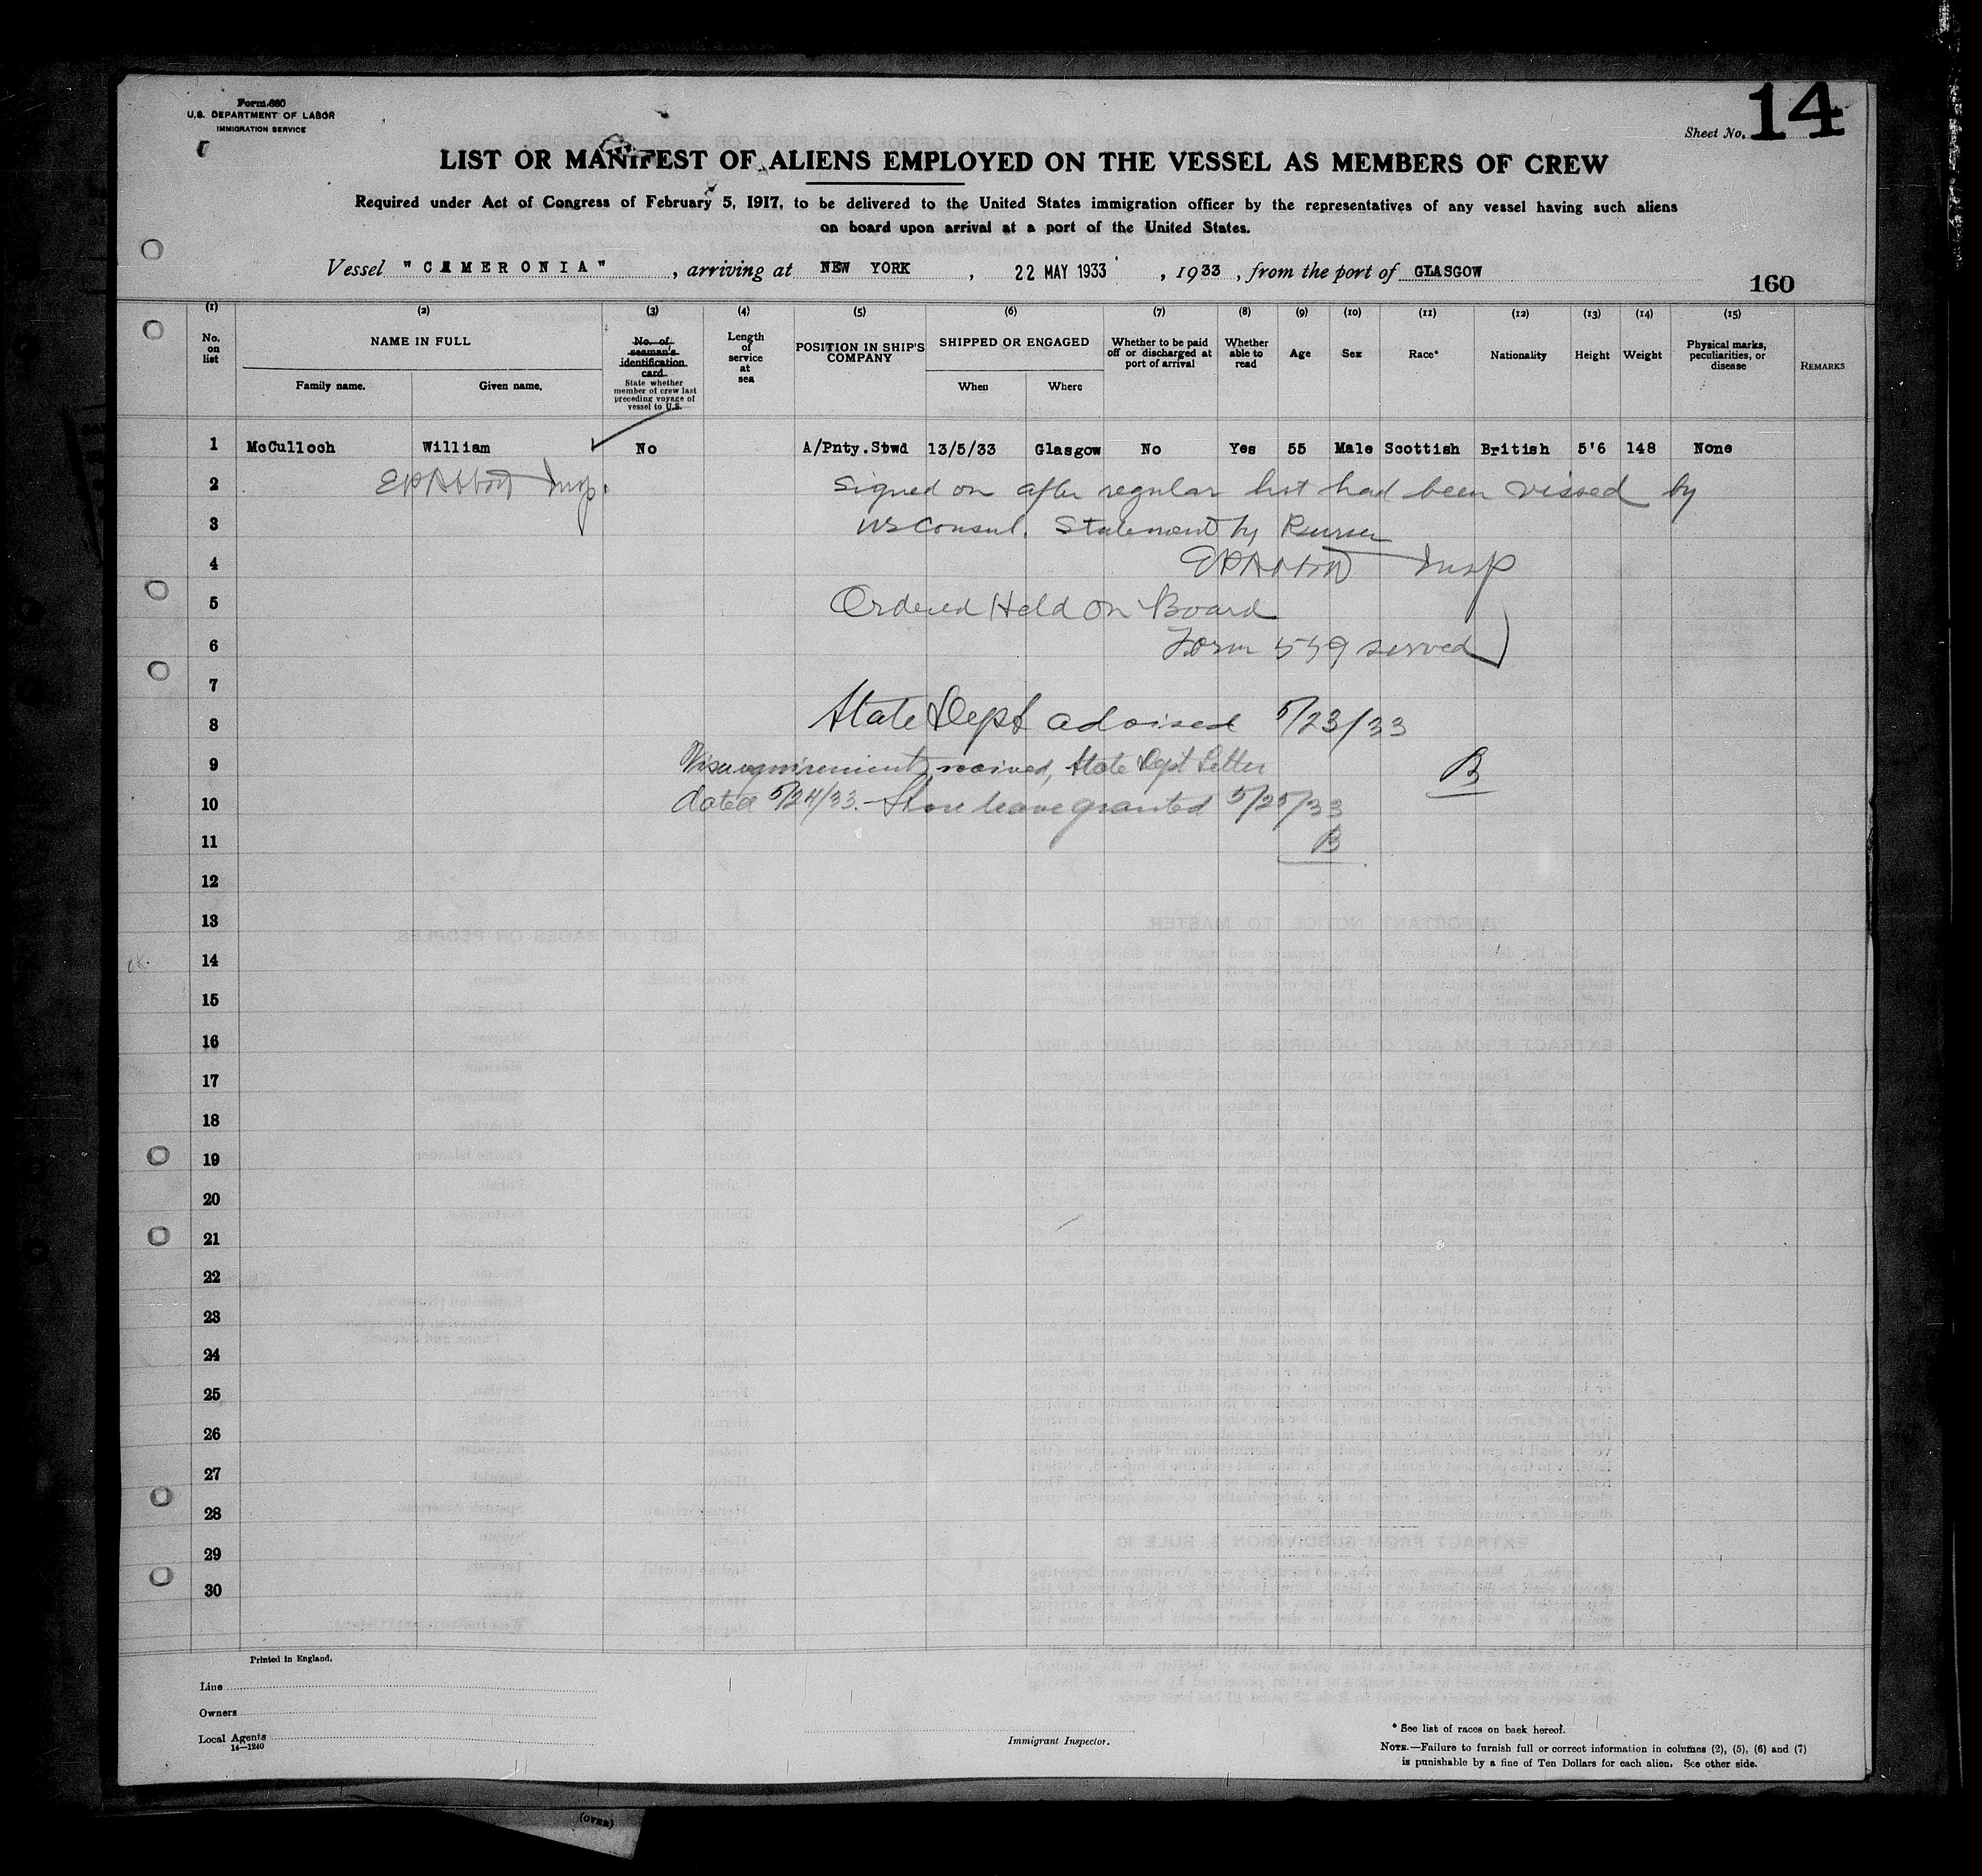 Form 680
U.S. DEPARTMENT OF LABOR
IMMIGRATION SERVICE
Sheet No. 14
LIST OR MANIFEST OF ALIENS EMPLOYED ON THE VESSEL AS MEMBERS OF CREW
Required under Act of Congress of February 5, 1917, to be delivered to the United States immigration officer by the representatives of any vessel having such aliens
on board upon arrival at a port of the United States.
Vessel "CAMERONIA", arriving at NEW YORK, 22 MAY 1933, 1933, from the port of GLASGOW
160
(1) (2) (3) (4) (5) (6) (7) (8) (9) (10) (11) (12) (13) (14) (15)
No. on list
NAME IN FULL
Family name. Given name.
No. of seaman's identification card.
State whether member of crew last preceding voyage of vessel to U.S.
Length of service at sea
POSITION IN SHIP'S COMPANY
SHIPPED OR ENGAGED
When Where
Whether to be paid off or discharged at port of arrival
Whether able to read
Age
Sex
Race*
Nationality
Height
Weight
Physical marks, peculiarities, or disease
REMARKS
1 McCulloch William No A/Pnty.Stwd 13/5/33 Glasgow No Yes 55 Male Scottish British 5'6 148 None
2 EPAbbott Insp. Signed on after regular list had been vissed by
3 US Consul. Statement by Purser
4 EPAbbott Insp
5 Ordered Held on Board
6 Form 559 served
7
8 State Dept advised 5/23/33
9 Visa requirements waived, State Dept Letter B
10 dated 5/24/33. Shore leave granted 5/25/33
11 B
12
13
14
15
16
17
18
19
20
21
22
23
24
25
26
27
28
29
30
Printed in England.
Line
Owners
Local Agents
14—1240
Immigrant Inspector.
* See list of races on back hereof.
NOTE.—Failure to furnish full or correct information in columns (2), (5), (6) and (7)
is punishable by a fine of Ten Dollars for each alien. See other side.
(OVER)